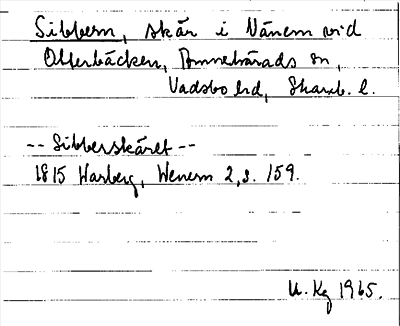 Sibbern, skär i Vänern vid
Otterbäcken, Amnehärads sn,
Vadsbo hd, Skarab. l.
-- Sibberskäret --
1815 Warberg, Wenern 2, s. 159.
U. Kg 1965.